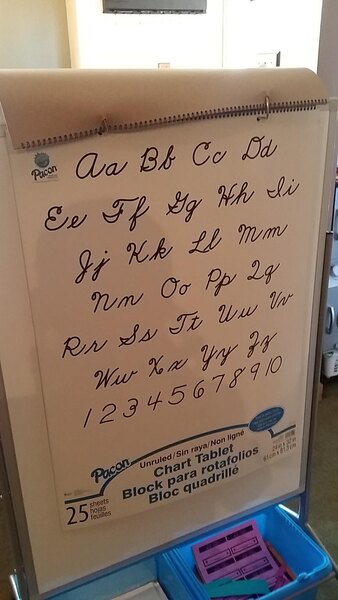 Pacon
Aa Bb Cc Dd
Ee Ff Gg Hh Ii
Jj Kk Ll Mm
Nn Oo Pp Qq
Rr Ss Tt Uu Vv
Ww Xx Yy Zz
1 2 3 4 5 6 7 8 9 10
Pacon
Unruled/Sin raya/Non ligné
Chart Tablet
Block para rotafolios
Bloc quadrillé
25 sheets hojas feuilles
24 in x 32 in
61cm x 81.3 cm